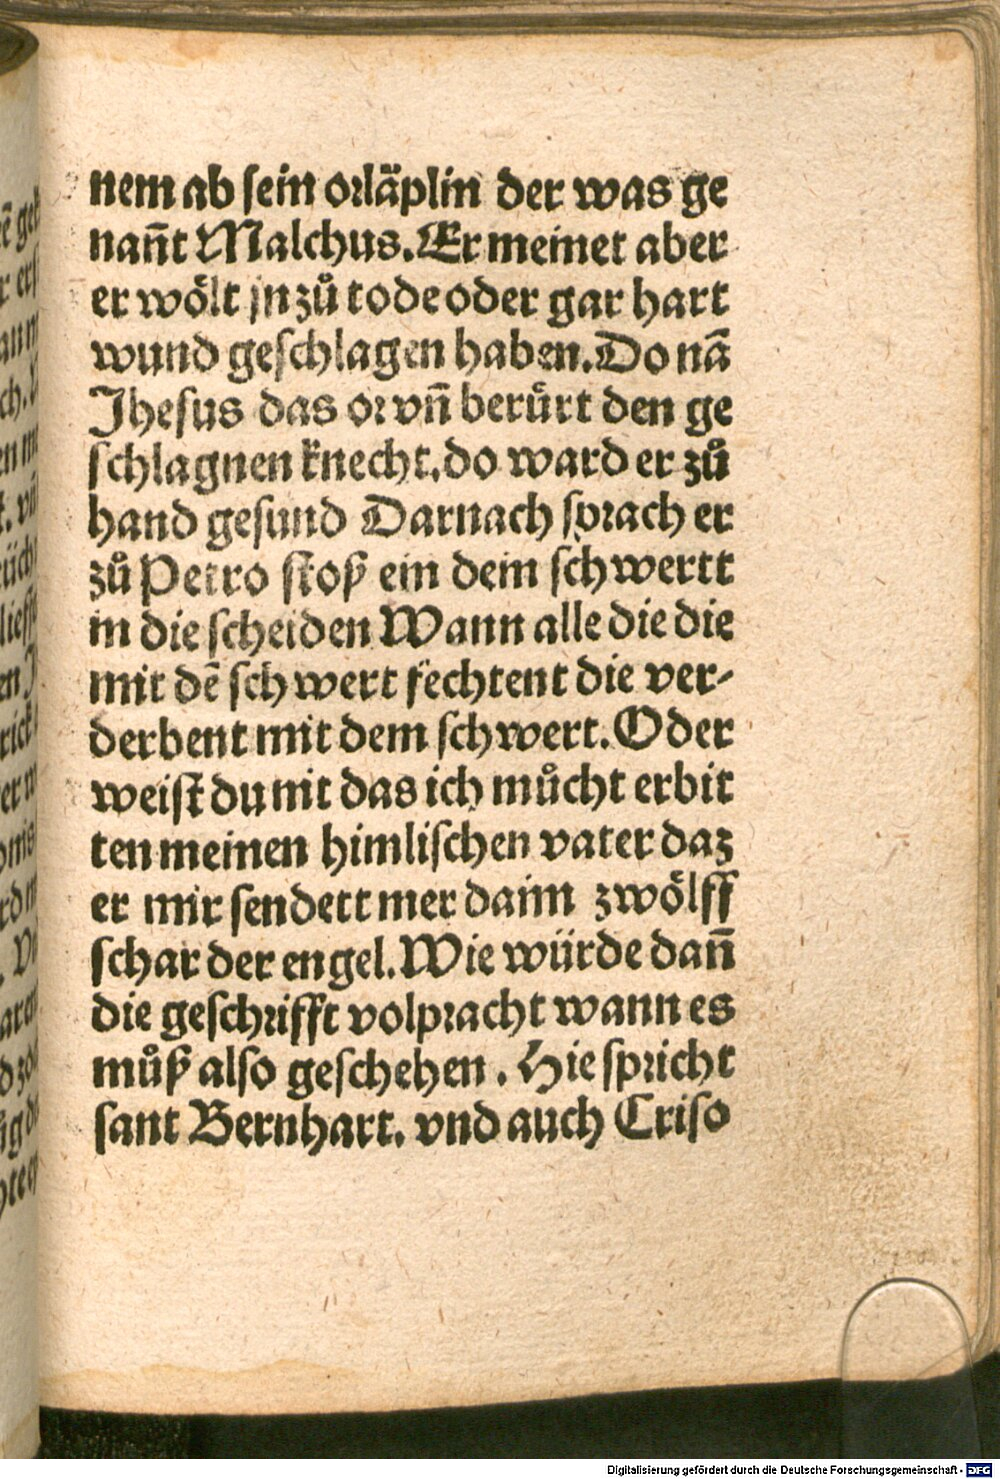 nem ab sein orläplin der was ge
nañt Malchus. Er meinet aber
er wölt jn zů tode oder gar hart
wund geſchlagen haben. Do nã
Jheſus das or vñ berůrt den ge
ſchlagnen knecht. do ward er zů
hand geſund Darnach ſprach er
zů Petro ſtoß ein dein ſchwertt
in die ſcheiden Wann alle die die
mit dẽ ſchwert fechtent die ver-
derbent mit dem ſchwert. Oder
weiſt du nit das ich můcht erbit
ten meinen himliſchen vater daz
er mir ſendett mer dann zwölff
ſchar der engel. Wie würde dañ
die geſchrifft volpracht wann es
můß alſo geſchehen. Hie ſpricht
ſant Bernhart. vnd auch Criſo
Digitalisierung gefördert durch die Deutsche Forschungsgemeinschaft - DFG